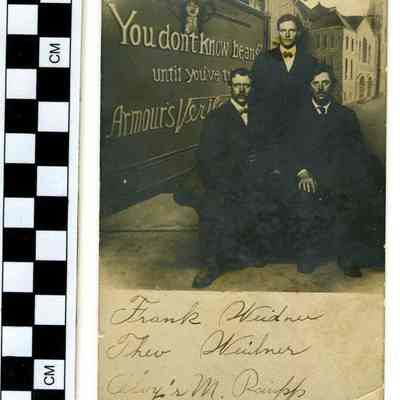 CM
You don't know beans
until you've
Armour's Veri
Frank Weidner
Theo Weidner
M. Raipp
CM